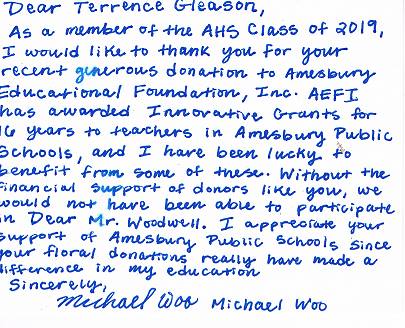 Dear Terrence Gleason,
As a member of the AHS Class of 2019,
I would like to thank you for your
recent generous donation to Amesbury
Educational Foundation, Inc. AEFI
has awarded Innovative Grants for
16 years to teachers in Amesbury Public
Schools, and I have been lucky to
benefit from some of these. Without the
financial support of donors like you, we
would not have been able to participate
in Dear Mr. Woodwell. I appreciate your
support of Amesbury Public Schools since
your floral donations really have made a
difference in my education
Sincerely,
Michael Woo Michael Woo